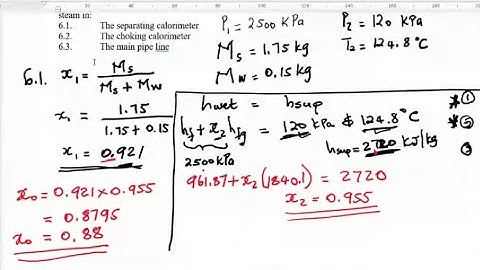 steam in:
6.1. The separating calorimeter
6.2. The choking calorimeter
6.3. The main pipe line
P₁ = 2500 kPa
M_s = 1.75 kg
M_w = 0.15 kg
P₂ = 120 kPa
T₂ = 124.8°C
6.1. x₁ = M_s / (M_s + M_w)
x₁ = 1.75 / (1.75 + 0.15)
x₁ = 0.921
x₀ = 0.921 x 0.955
= 0.8795
x₀ = 0.88
h_wet = h_sup * ①
h_f + x₂h_fg = 120 kPa & 124.8°C *
2500kPa
h_sup = 2720 kJ/kg ③
961.87 + x₂(1840.1) = 2720
x₂ = 0.955